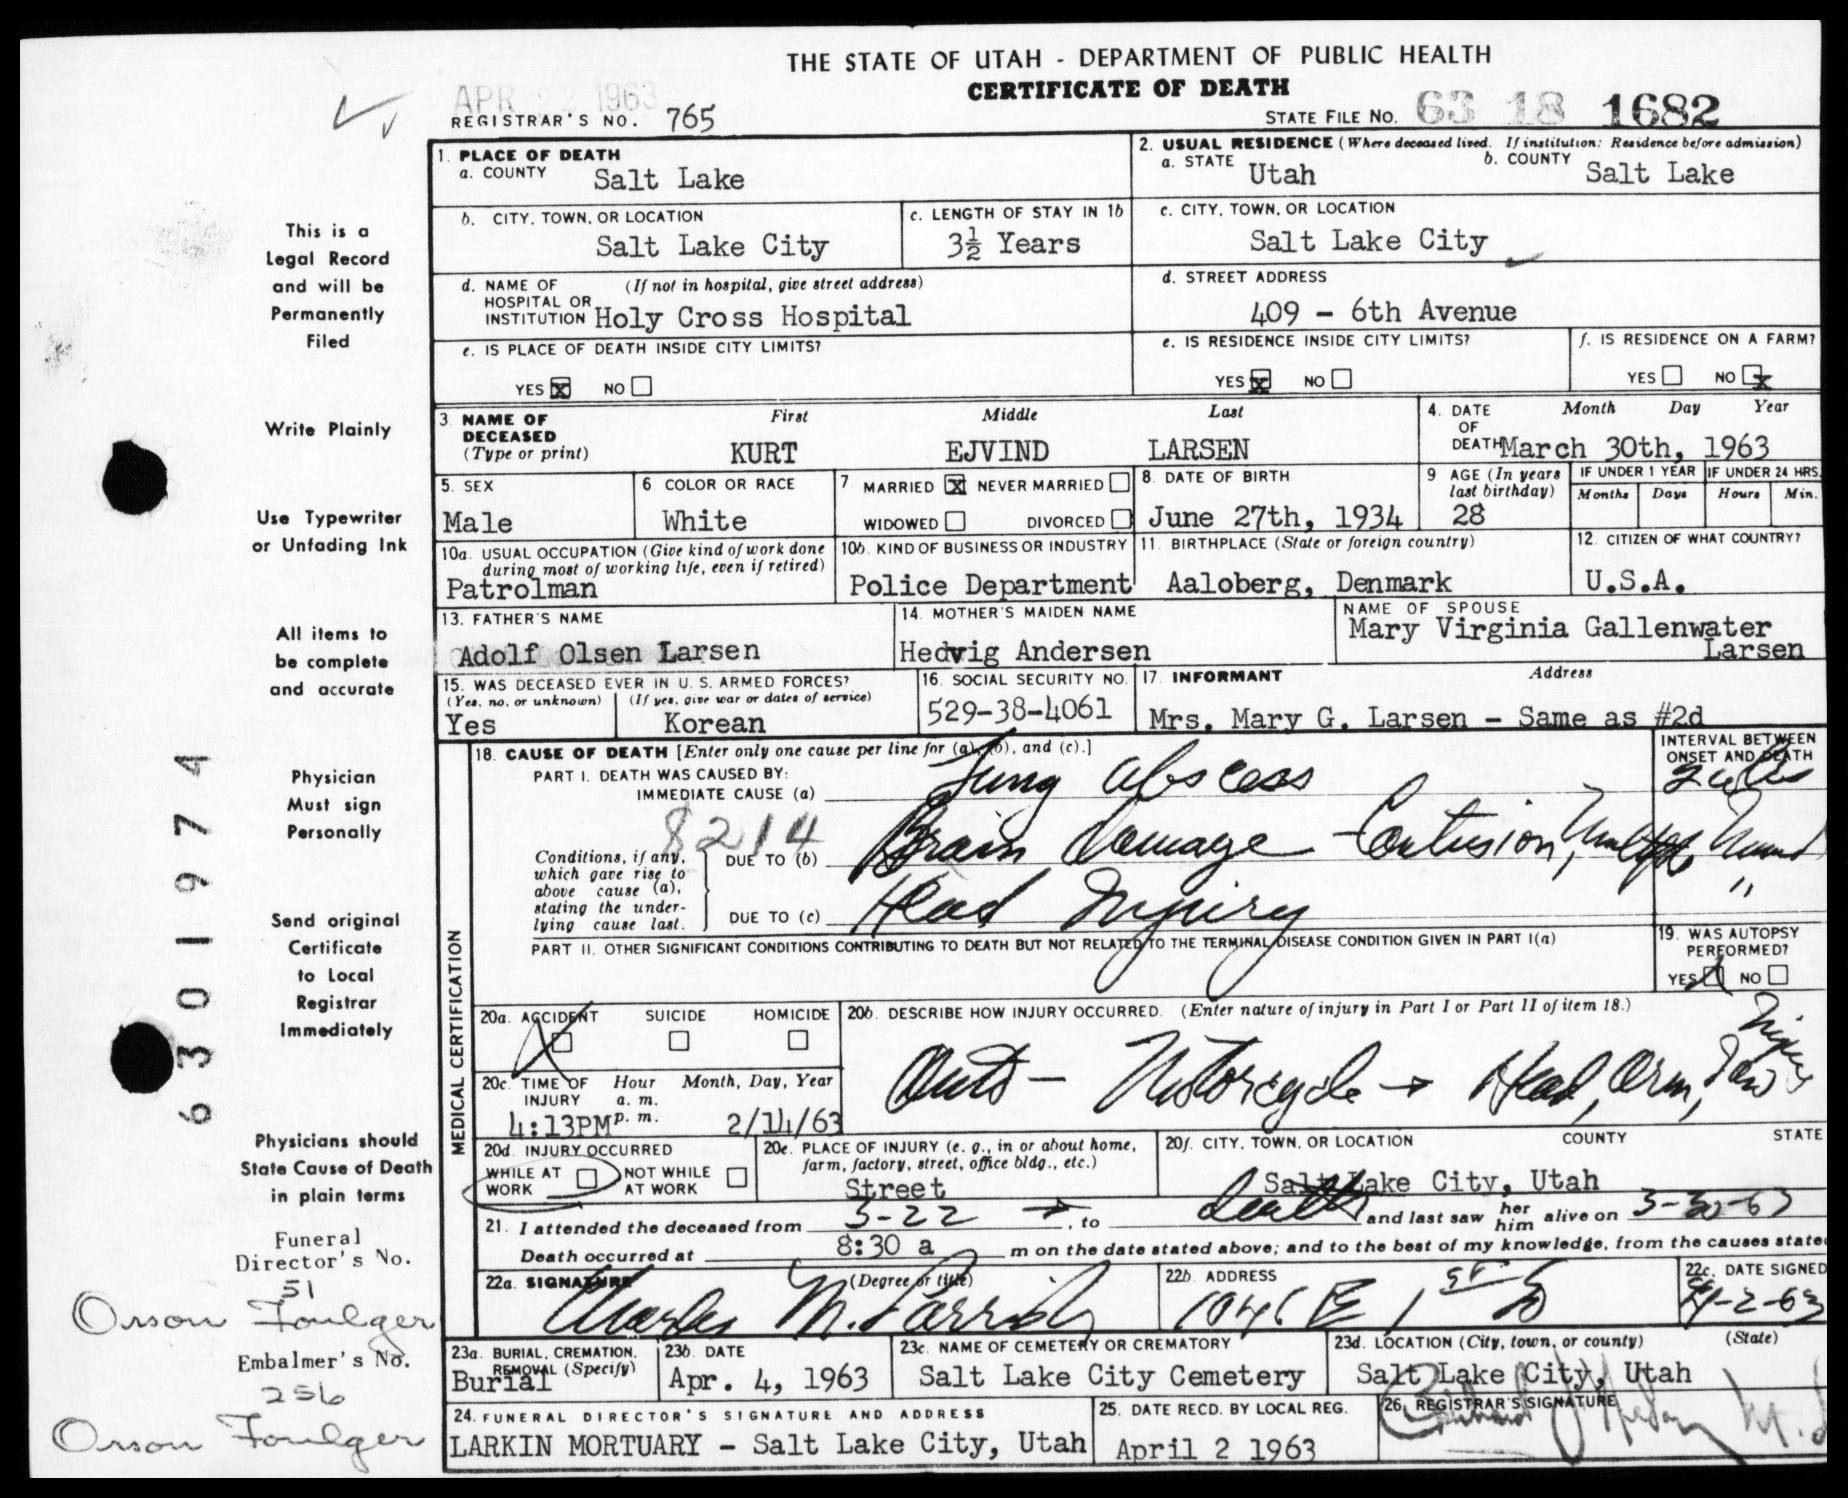 THE STATE OF UTAH - DEPARTMENT OF PUBLIC HEALTH
CERTIFICATE OF DEATH
APR 22 1963
REGISTRAR'S NO. 765
STATE FILE NO. 63 18 1682
1. PLACE OF DEATH
a. COUNTY Salt Lake
2. USUAL RESIDENCE (Where deceased lived. If institution: Residence before admission)
a. STATE Utah b. COUNTY Salt Lake
b. CITY, TOWN, OR LOCATION
Salt Lake City
c. LENGTH OF STAY IN 1b
3½ Years
c. CITY, TOWN, OR LOCATION
Salt Lake City
d. NAME OF HOSPITAL OR INSTITUTION (If not in hospital, give street address)
Holy Cross Hospital
d. STREET ADDRESS
409 - 6th Avenue
e. IS PLACE OF DEATH INSIDE CITY LIMITS?
YES X NO
e. IS RESIDENCE INSIDE CITY LIMITS?
YES X NO
f. IS RESIDENCE ON A FARM?
YES NO X
3. NAME OF DECEASED (Type or print)
First Middle Last
KURT EJVIND LARSEN
4. DATE OF DEATH Month Day Year
March 30th, 1963
5. SEX
Male
6. COLOR OR RACE
White
7. MARRIED X NEVER MARRIED
WIDOWED DIVORCED
8. DATE OF BIRTH
June 27th, 1934
9 AGE (In years last birthday)
28
IF UNDER 1 YEAR
Months Days
IF UNDER 24 HRS.
Hours Min.
10a. USUAL OCCUPATION (Give kind of work done during most of working life, even if retired)
Patrolman
10b. KIND OF BUSINESS OR INDUSTRY
Police Department
11. BIRTHPLACE (State or foreign country)
Aaloberg, Denmark
12. CITIZEN OF WHAT COUNTRY?
U.S.A.
13. FATHER'S NAME
Adolf Olsen Larsen
14. MOTHER'S MAIDEN NAME
Hedvig Andersen
NAME OF SPOUSE
Mary Virginia Gallenwater
Larsen
15. WAS DECEASED EVER IN U. S. ARMED FORCES?
(Yes, no, or unknown) (If yes, give war or dates of service)
Yes Korean
16. SOCIAL SECURITY NO.
529-38-4061
17. INFORMANT Address
Mrs. Mary G. Larsen - Same as #2d
MEDICAL CERTIFICATION
18. CAUSE OF DEATH [Enter only one cause per line for (a), (b), and (c).]
INTERVAL BETWEEN ONSET AND DEATH
PART I. DEATH WAS CAUSED BY:
IMMEDIATE CAUSE (a) Lung abscess
8214
Conditions, if any, which gave rise to above cause (a), stating the underlying cause last.
DUE TO (b) Brain damage - Contusion,
DUE TO (c) Head Injury "
PART II. OTHER SIGNIFICANT CONDITIONS CONTRIBUTING TO DEATH BUT NOT RELATED TO THE TERMINAL DISEASE CONDITION GIVEN IN PART I(a)
19. WAS AUTOPSY PERFORMED?
YES X NO
20a. ACCIDENT SUICIDE HOMICIDE
X
20b. DESCRIBE HOW INJURY OCCURRED. (Enter nature of injury in Part I or Part II of item 18.)
Auto - Motorcycle → Head, Arm, Jaw
20c. TIME OF INJURY Hour Month, Day, Year
a. m.
p. m.
4:13PM 2/14/63
20d. INJURY OCCURRED
WHILE AT WORK NOT WHILE AT WORK
20e. PLACE OF INJURY (e. g., in or about home, farm, factory, street, office bldg., etc.)
Street
20f. CITY, TOWN, OR LOCATION COUNTY STATE
Salt Lake City, Utah
21. I attended the deceased from 3-22 → , to death and last saw her him alive on 3-30-63
Death occurred at 8:30 a m on the date stated above; and to the best of my knowledge, from the causes state
22a. SIGNATURE (Degree or title)
Charles M. Parrish
22b. ADDRESS
22c. DATE SIGNED
4-2-63
23a. BURIAL, CREMATION, REMOVAL (Specify)
Burial
23b. DATE
Apr. 4, 1963
23c. NAME OF CEMETERY OR CREMATORY
Salt Lake City Cemetery
23d. LOCATION (City, town, or county) (State)
Salt Lake City, Utah
24. FUNERAL DIRECTOR'S SIGNATURE AND ADDRESS
LARKIN MORTUARY - Salt Lake City, Utah
25. DATE RECD. BY LOCAL REG.
April 2 1963
26. REGISTRAR'S SIGNATURE
This is a
Legal Record
and will be
Permanently
Filed
Write Plainly
Use Typewriter
or Unfading Ink
All items to
be complete
and accurate
Physician
Must sign
Personally
Send original
Certificate
to Local
Registrar
Immediately
Physicians should
State Cause of Death
in plain terms
Funeral
Director's No.
51
Orson Foulger
Embalmer's No.
256
Orson Foulger
6301974